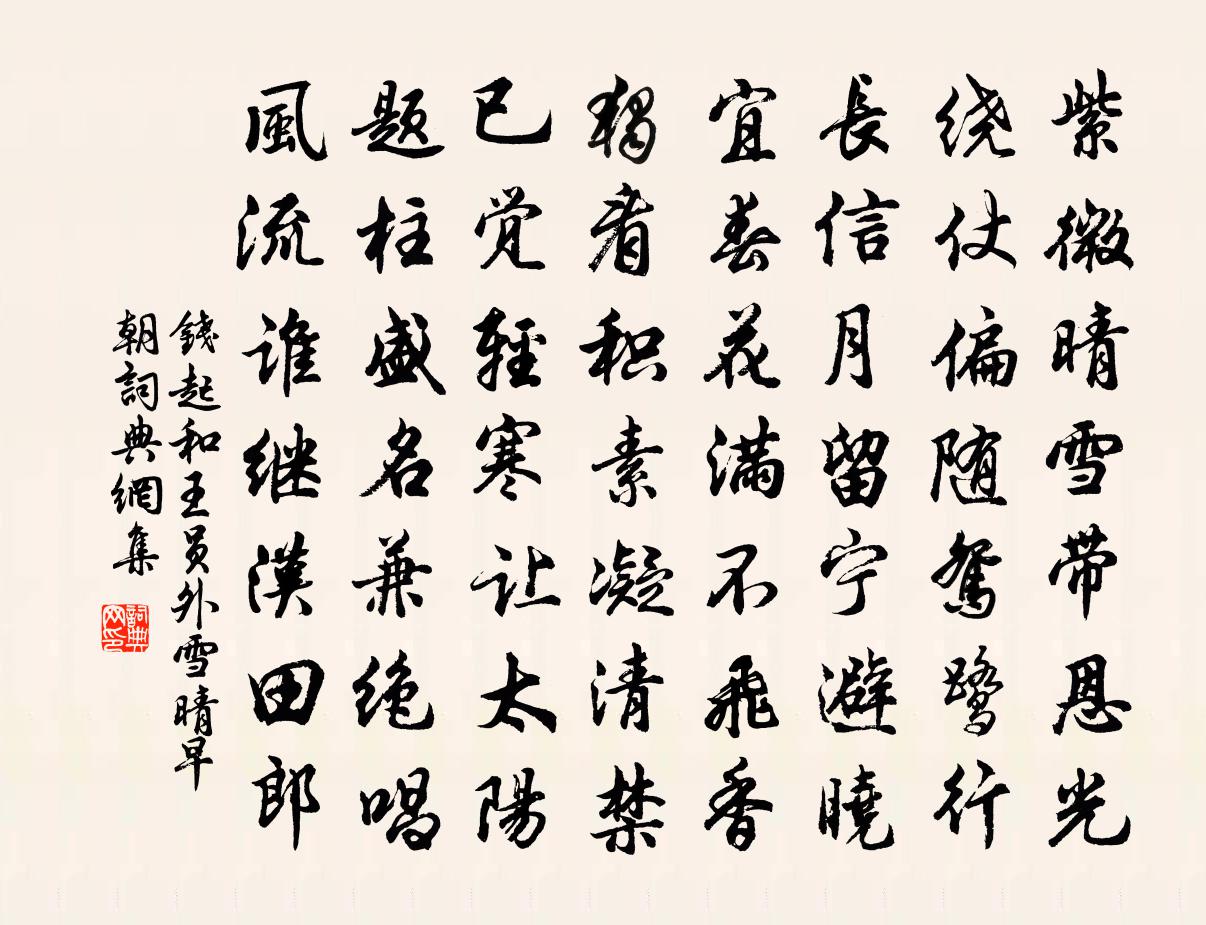 紫微晴雪带恩光
绕仗偏随鸳鹭行
長信月留宁避曉
宜春花满不飛香
独看积素凝清禁
已觉輕寒让太陽
题柱盛名兼绝唱
風流谁继漢田郎
錢起和王员外雪晴早
朝詞典網集
詞典
网印